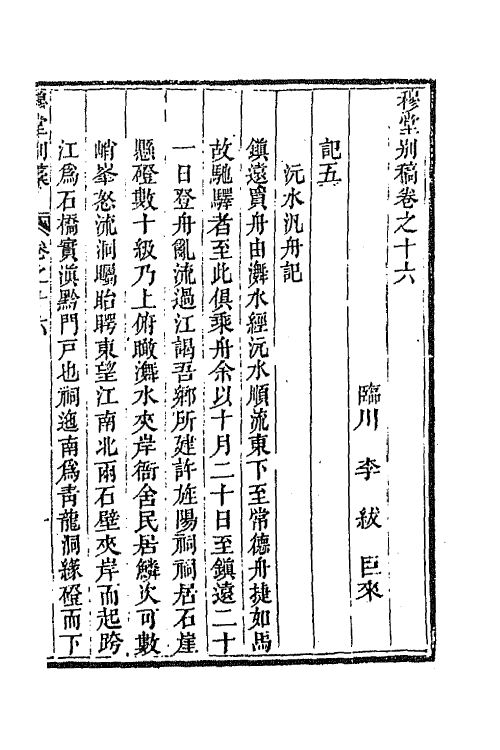 穆堂别稿卷之十六
臨川 李紱 巨來
記五
沅水汎舟記
鎮遠買舟由潕水經沅水順流東下至常德舟捷如馬
故馳驛者至此俱乘舟余以十月二十日至鎮遠二十
一日登舟亂流過江謁吾鄉所建許旌陽祠祠居石崖
懸磴數十級乃上俯瞰潕水夾岸衙舍民居鱗次可數
峭峯怒流洞矚眙聘東望江南北兩石壁夾岸而起跨
江爲石橋實滇黔門戶也祠迤南爲青龍洞緣磴而下
穆堂别稾 卷之十六 一